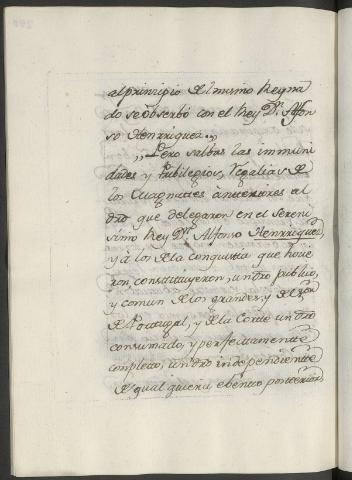 al prinzipio del mismo Reyna
do se observó con el Rey Dn. Alfon
so Henrriquez.,,
,,Pero salbas las immuni
dades y pribilegios, Regalias de
los Magnates anteriores al
dro que delegaron en el Sereni
simo Rey Dn. Alfonso Henrriquez,
y á los de la conquista que hovie
ron, constituyeron, un dro publico,
y comun de los grandes, y del
de Portugal, y de la Corte un dro
consumado, y perfectamente
completo, un dro independiente
de qual quiera ebento posterior,